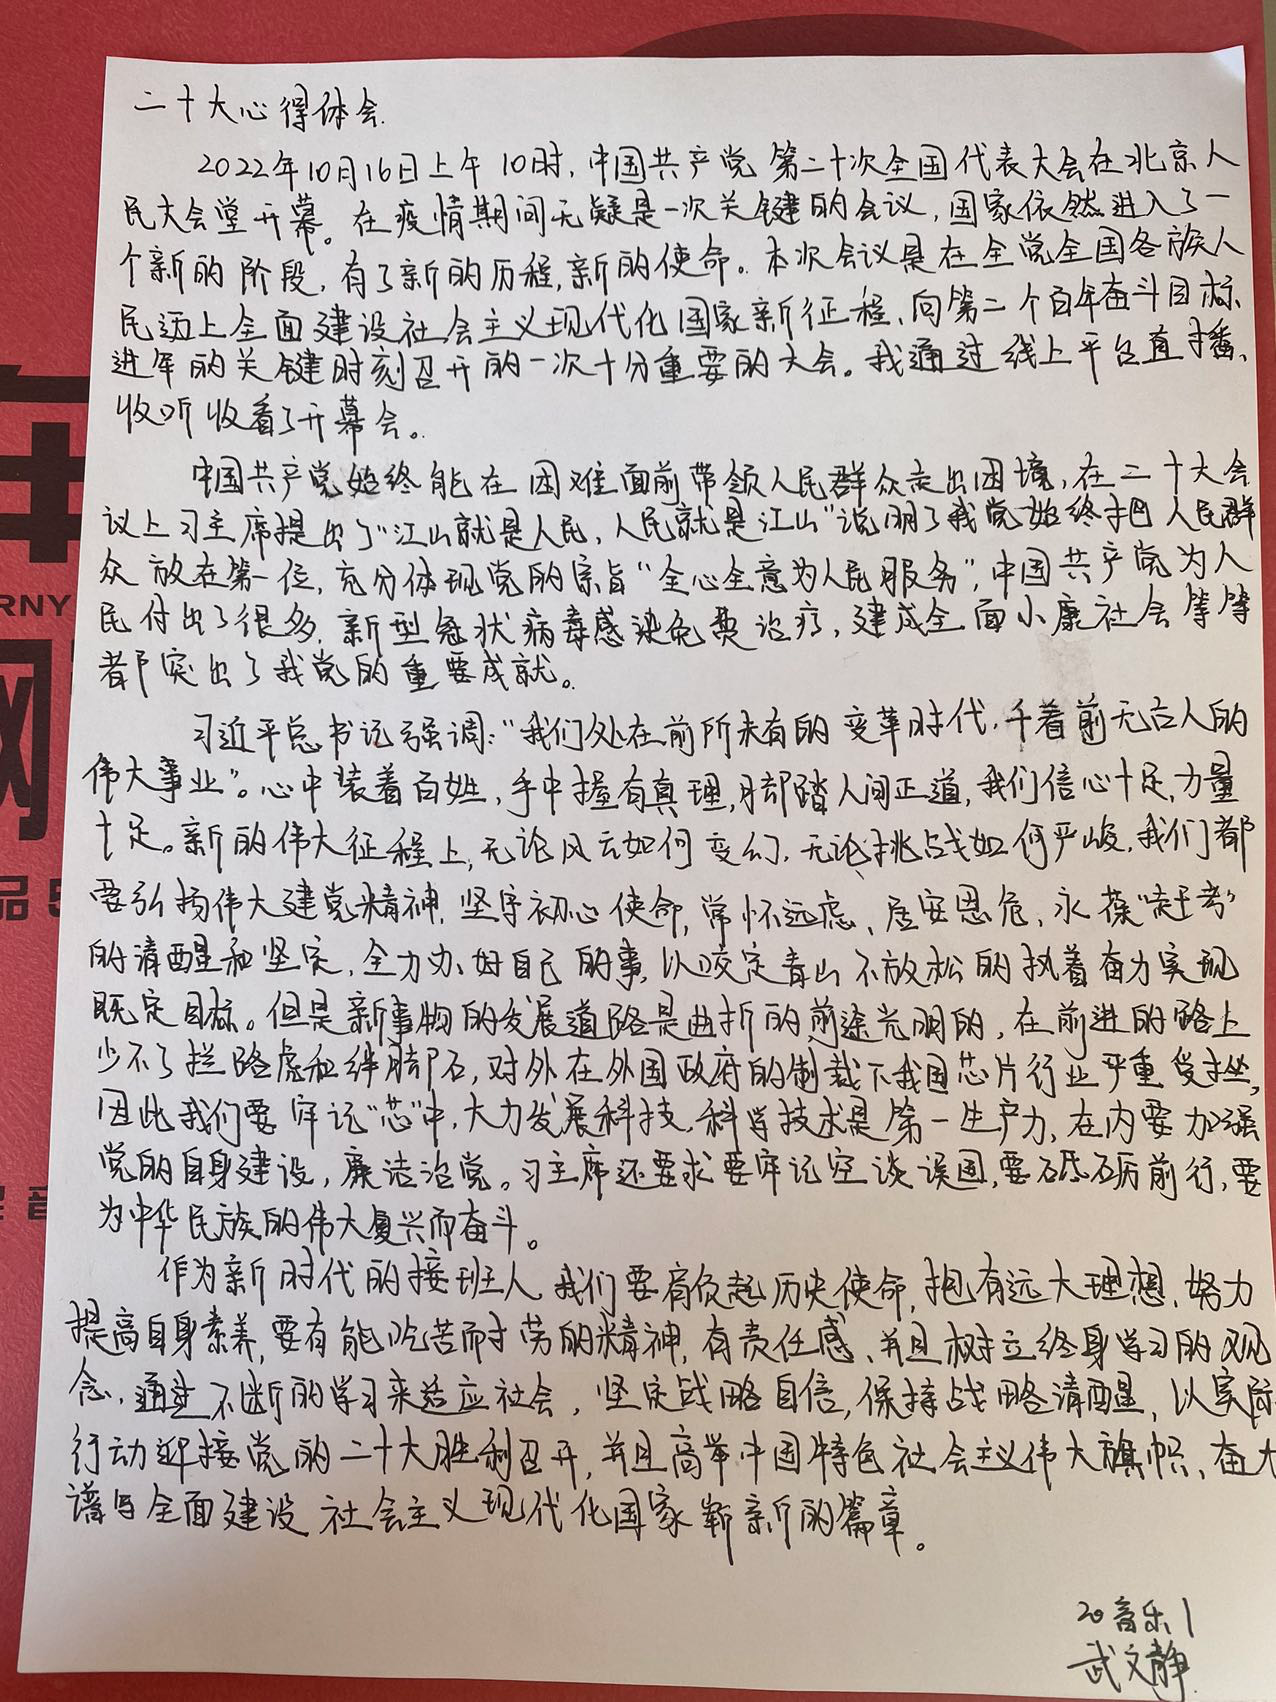 二十大心得体会.
2022年10月16日上午10时,中国共产党第二十次全国代表大会在北京人
民大会堂开幕。在疫情期间无疑是一次关键的会议,国家依然进入了一
个新的阶段,有了新的历程,新的使命。本次会议是在全党全国各族人
民迈上全面建设社会主义现代化国家新征程、向第二个百年奋斗目标
进军的关键时刻召开的一次十分重要的大会。我通过线上平台直播、
收听收看了开幕会。
中国共产党始终能在困难面前带领人民群众走出困境,在二十大会
议上习主席提出了"江山就是人民,人民就是江山"说明了我党始终把人民群
众放在第一位,充分体现党的宗旨"全心全意为人民服务",中国共产党为人
民付出了很多,新型冠状病毒感染免费治疗,建成全面小康社会等等
都突出了我党的重要成就。
习近平总书记强调:"我们处在前所未有的变革时代,干着前无古人的
伟大事业"。心中装着百姓,手中握有真理,脚踏人间正道,我们信心十足,力量
十足。新的伟大征程上,无论风云如何变幻,无论挑战如何严峻,我们都
要弘扬伟大建党精神,坚守初心使命,常怀远虑、居安思危,永葆"赶考"
的清醒和坚定,全力办好自己的事,以咬定青山不放松的执着奋力实现
既定目标。但是新事物的发展道路是曲折的前途光明的,在前进的路上
少不了拦路虎和绊脚石,对外在外国政府的制裁下我国芯片行业严重受挫,
因此我们要牢记"芯"中,大力发展科技,科学技术是第一生产力,在内要加强
党的自身建设,廉洁治党。习主席还要求要牢记空谈误国,要砥砺前行,要
为中华民族的伟大复兴而奋斗。
作为新时代的接班人我们要肩负起历史使命,抱有远大理想,努力
提高自身素养,要有能吃苦而耐劳的精神,有责任感、并且树立终身学习的观
念,通过不断的学习来适应社会,坚定战略自信,保持战略清醒,以实际
行动迎接党的二十大胜利召开,并且高举中国特色社会主义伟大旗帜、奋力
谱写全面建设社会主义现代化国家崭新的篇章。
20音乐1
武文静
RNY
品
音